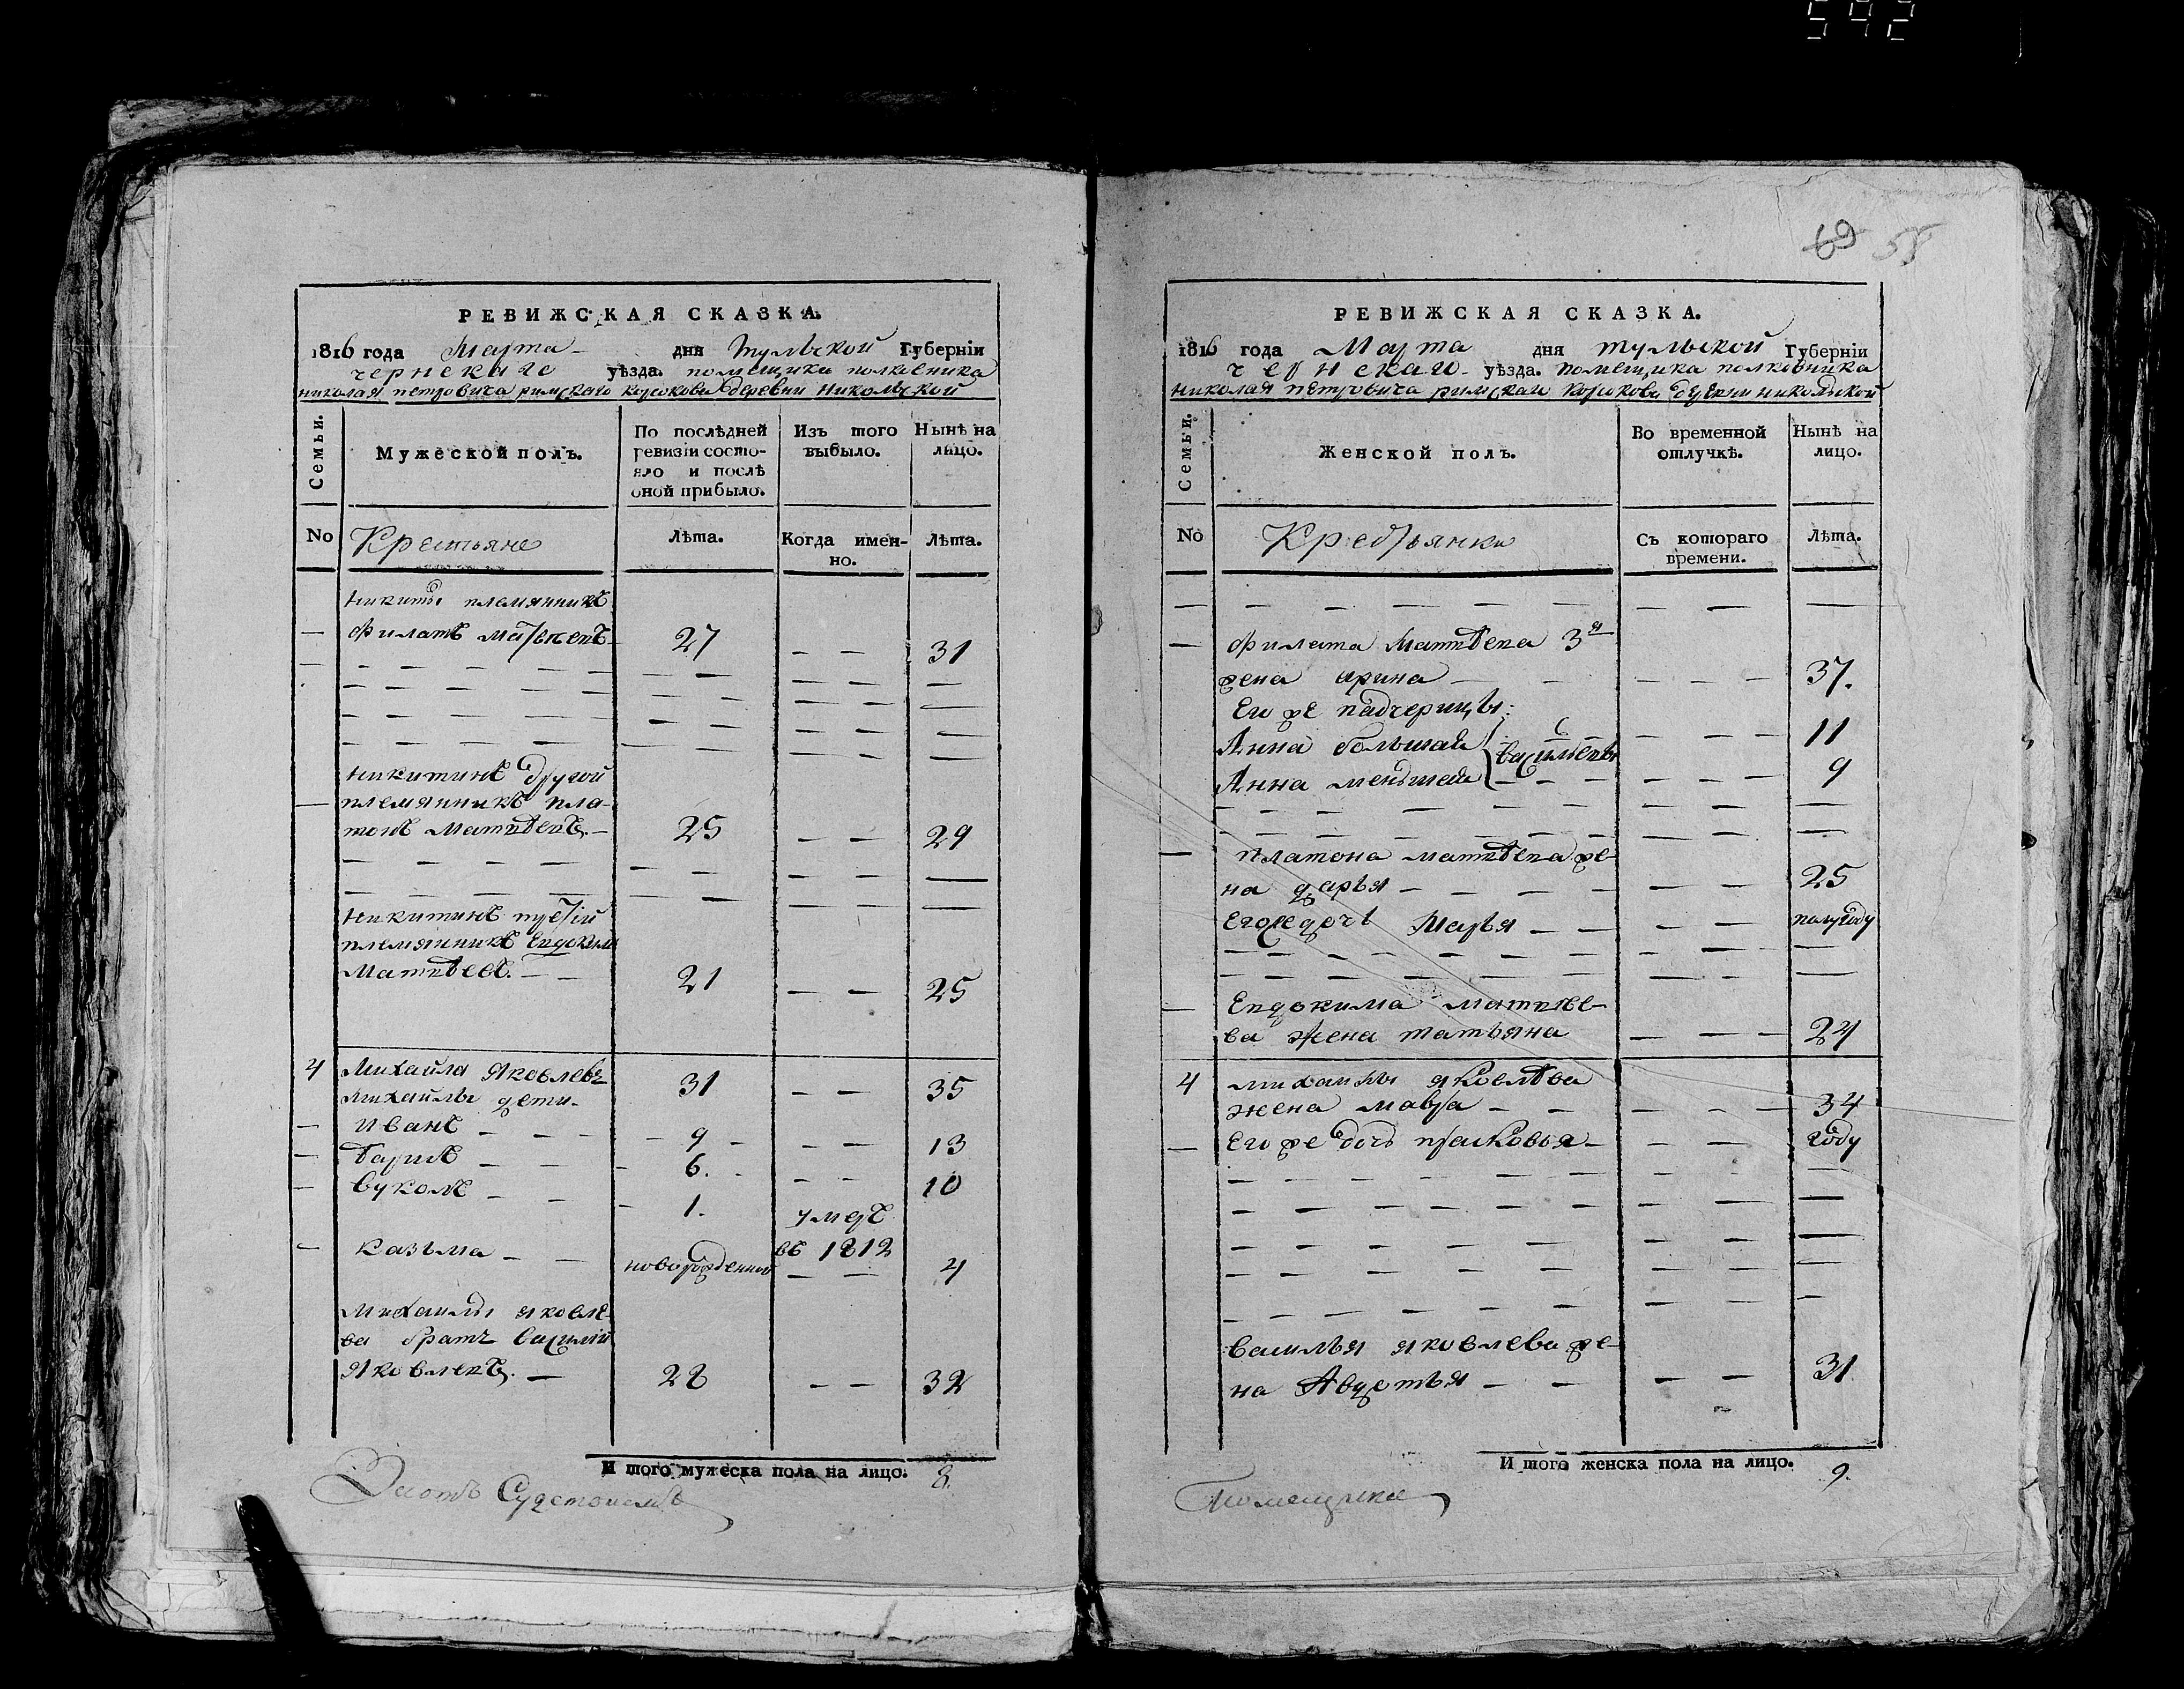 592
РЕВИЖСКАЯ СКАЗКА.
1816 года Марта дня Тульской Губерніи
чернскаго уѣзда. помещика полковника
николая петровича римскаго корсокова деревни никольской
Семьи.
Мужеской полъ.
По послѣдней ревизіи состояло и послѣ оной прибыло.
Изъ того выбыло.
Нынѣ на лицо.
No Крестьяне Лѣта. Когда именно. Лѣта.
никиты племянникъ
— филатъ матвеевъ 27 — — 31
никитинъ другой
— племянникъ пла-
тонъ Матвѣевъ. — 25 — — 29
никитинъ третій
племянникъ Евдокимъ
Матвѣевъ. — — 21 — — 25
4 Михайла Яковлевъ 31 — — 35
михайлы дети
— Иванъ — — — 9 — — — 13
— — — 6. — — 10
— вуколъ — — 1. умеръ
въ 1812
— казьма — — новорожденной — — 4
михаилы яковле-
ва братъ василій
яковлевъ. — 28 — — 32
И того мужеска пола на лицо. 8.
69 58
РЕВИЖСКАЯ СКАЗКА.
1816 года Марта дня тульской Губерніи
чернскаго уѣзда. помещика полковника
николая петровича римскаго корсокова деревни никольской
Семьи.
Женской полъ.
Во временной отлучкѣ.
Нынѣ на лицо.
No Крестьянки Съ котораго времени. Лѣта.
— филата Матвѣева 3я
жена арина — — — — — 37.
Его же падчерицы:
Анна большая — — — 11
васильевы
Анна меньшея — — — 9
— платона матвѣева же-
на дарья — — — — — — — 25
Его же дочь Марья — — — — полугоду
— Евдокима матвѣе-
ва жена татьяна — — — 24
4 михаилы яковлѣва
жена мавра — — — — — 34
— Его же дочь прасковья — — — году
василья яковлева же-
на Авдотья — — — — 31
И того женска пола на лицо. 9.
Помещика